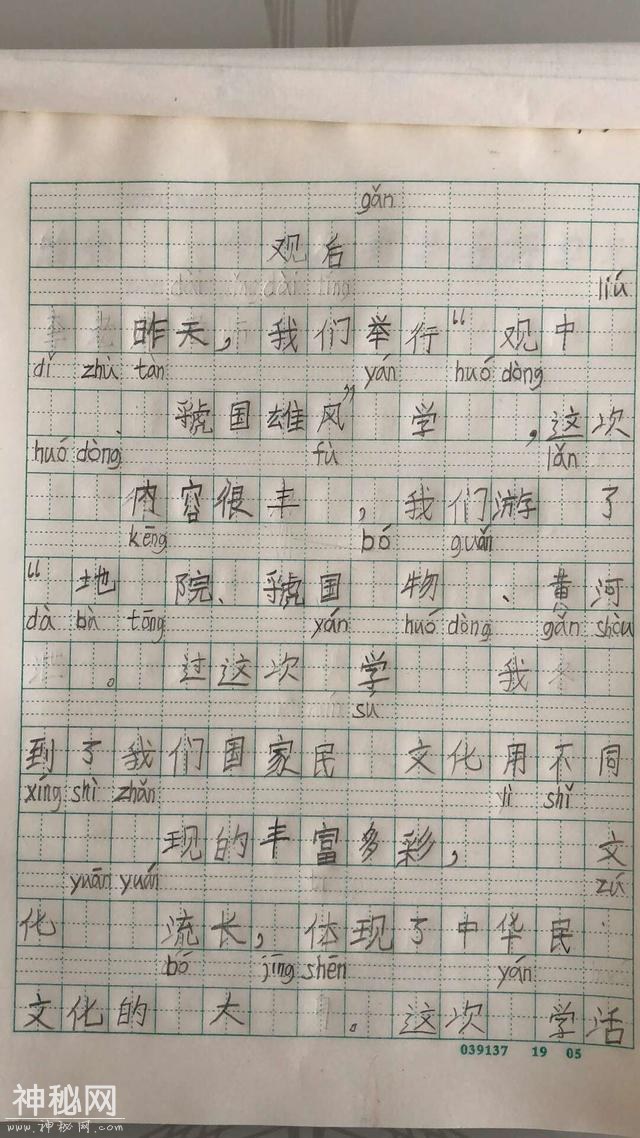 gǎn
观后
liú
昨天，我们举行“观中
dǐ zhù tan yán huó dòng
虢国雄风”学，这次
huó dòng fù lǎn
内容很丰，我们游了
kēng bó guǎn
“地院、虢国物、黄河
dà bà tōng yán huó dòng gǎn shòu
。过这次学我
sú
到了我们国家民文化用不同
xíng shì zhǎn yì shǐ
现的丰富多彩，文
yuān yuán zú
化流长，体现了中华民
bó jīng shēn yán
文化的大。这次学活
039137 19 05
神秘网
www.神秘网.com